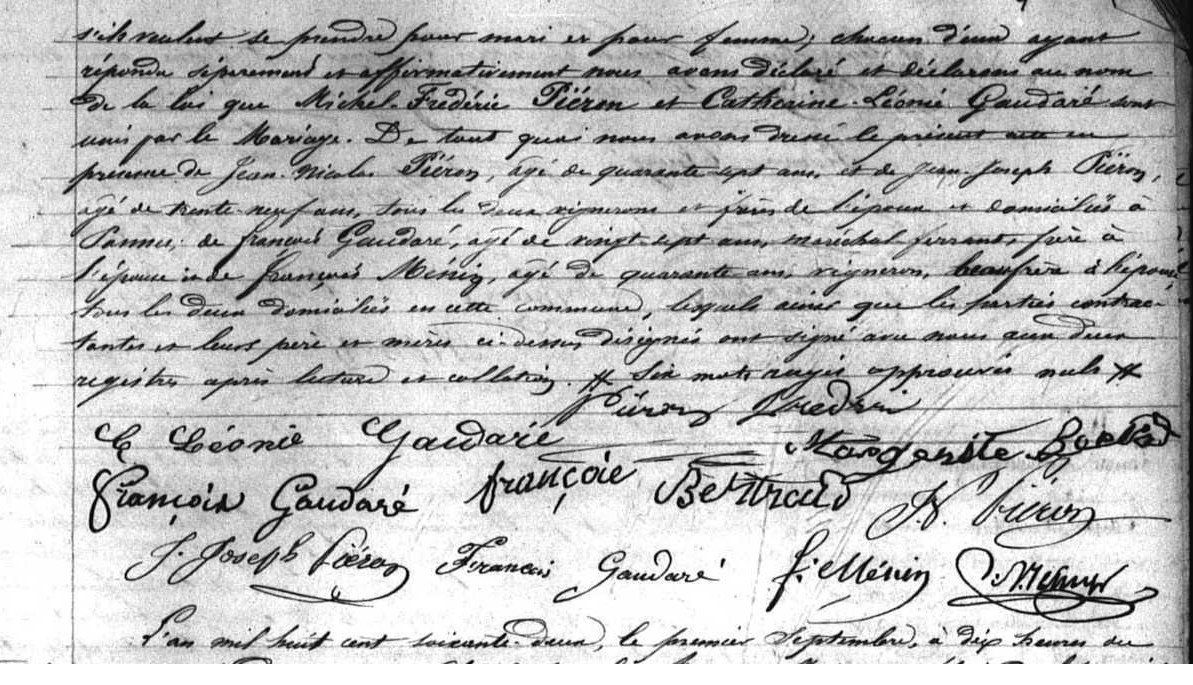 s'ils veulent se prendre pour mari et pour femme, chacun d'eux ayant
répondu séparement et affirmativement nous avons déclaré et déclarons au nom
de la loi que Michel-Frédéric Piéron et Catherine-Léonie Gaudaré sont
unis par le Mariage. De tout quoi nous avons dressé le présent acte en
présence de Jean-Nicolas Piéron, âgé de quarante-sept ans, et de Jean-Joseph Piéron,
âgé de trente-neuf ans, tous les deux vignerons et frères de l'époux et domiciliés à
de François Gaudaré, âgé de vingt-sept ans, maréchal ferrant, frère à
l'épouse et de François Ménin, âgé de quarante ans, vigneron, beaufrère à l'épouse
tous les deux domiciliés en cette commune, lesquels ainsi que les parties contrac-
tantes et leurs père et mères ci-dessus désignés ont signé avec nous aux deux
registres après lecture et collation. # Six mots rayés approuvés nuls #
Piéron Fredric
C Léonie Gaudaré Margerite
François Gaudaré françoise Bertrand J N. Piéron
J. Joseph Piéron Francois Gaudaré f. Ménin
L'an mil huit cent soixante-deux, le premier Septembre, à dix heures du